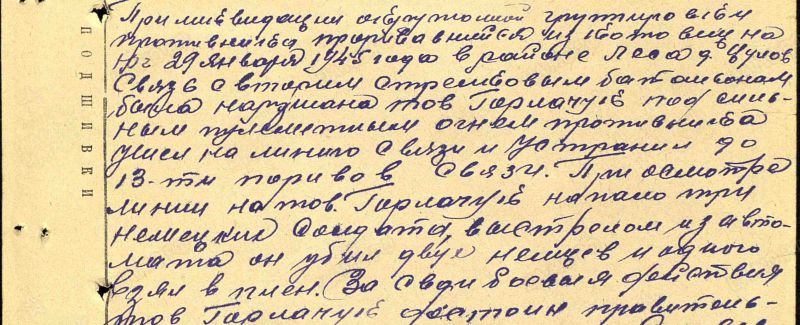 При ликвидации окруженной группировки
противника, прорвавшейся из котла на
юг 29 января 1945 года в районе леса д.
Связь с вторым стрелковым батальоном
была нарушена тов Горлачук под силь-
ным пулеметным огнем противника
ушел на линию связи и устранил до
13-ти поривов связи. При осмотре
линии на тов. Горлачук напало три
немецких солдата, выстрелом из авто-
мата он убил двух немцев и одного
взял в плен. За свои боевыя действия
тов Горлачук достоин правитель-
ПОДШИВКИ